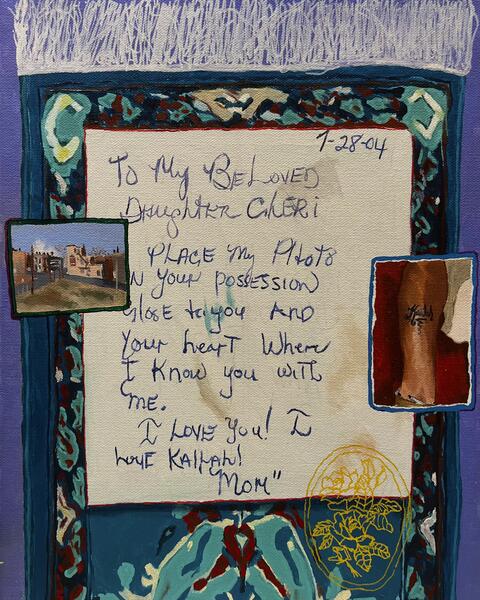 1-28-04
To My BeLoved
Daughter Cheri
PLACE My Photo
in your possession
Close to you AND
Your heart Where
I know you with
me.
I Love You! I
Love KAilAh!
Mom"